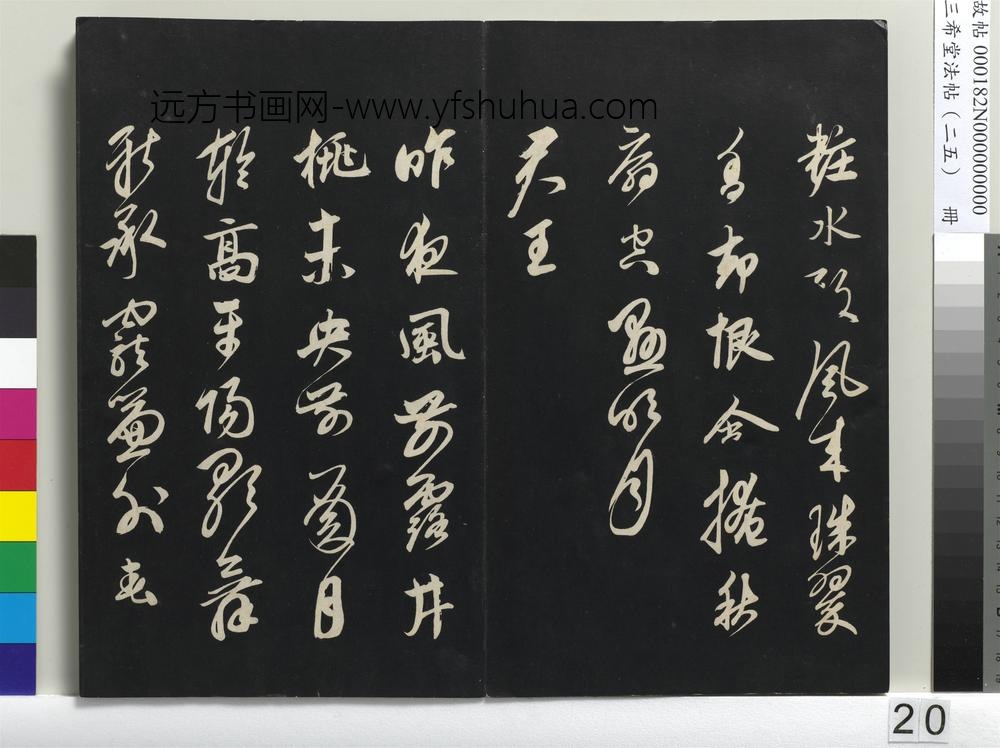 远方书画网-www.yfshuhua.com
粧水殿風来珠翠
香却恨含掩秋
扇空懸明月
君王
昨夜風開露井
桃未央前殿月
輪高平陽歌舞
新承寵簾外春
故帖 000182N000000000
三希堂法帖(二五) 冊
20